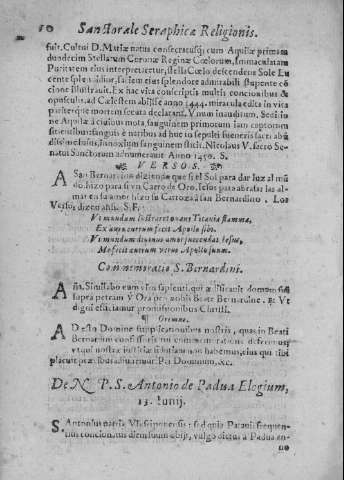 10 Sanctorale Seraphicæ Religionis.
fuit. Cultui D. Mariæ natus consecratusq; cum Aquilæ primam
duodecim Stellarum Coronæ Reginæ Cœlorum, Immaculatam
Puritatem eius interpretetur, stella Cœlo descendens Sole Lu
cente splenduit, sa eius splendore admirabili stupente cõ
cione illustrauit. Ex hac vita conscriptis multis concionibus &
opusculis, ad Cælestem abijsse anno 1444. miracula edita in vita
post mortem declarant. Vnum inauditum, Sedi
ne Aquilæ à cuius mota sanguinem primotum iam captorum
sitienibus: sanguis è naribus ad hue insepulti
innoxium sanguinem Nicolaus V. sacro Se-
natus Sanctorum adnumerauit Anno 1450. S.
VERSOS.
A San Bernardino diziendo que si el Sol para dar luz al mũ
do hizo para si vn Carro de Oro, Iesus para abrasar las al
mas en su amor hizo su Carroza à san Bernardino. Los
Versos dizen assi. S. F.
Vt mundum lustraret Titania flamma,
Ex auro currum fecit Apollo sibi.
Vt mundum diuinus amor succendat Iesus,
currum verus Apollo suum.
Commemoratio S. Bernardini.
Añ. Similabo eum viro sapienti, qui ædificauit domum suã
supra petram. ℣ Ora pro nobis Beate Bernardine. ℟ Vt
digni efficiamur promissionibus Christi.
¶ Oremus.
ADesto Domine supplicationibus nostris, quas in Beati
Bernardini confessoris tui commemoratione deferimus,
vt qui nostræ iustitiæ fiduciam non habemus, eius qui tibi
placuit precibus adiuuemur. Per Dominum, &c.
De N. P. S. Antonio de Padua Elogium,
13. Iunij.
S. Antonius patria Vlissiponensis: sed quia Patauij frequen-
tius concionatus diem suum obijt, vulgo dictus à Padua an-
no